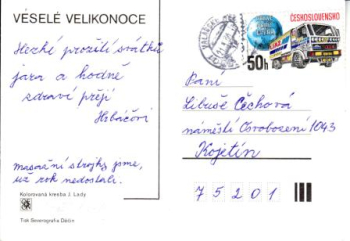 VESELÉ VELIKONOCE
Hezké prožití svátků
jara a hodně
zdraví přejí
Hrbáčovi
masážní strojky jsme
už rok nedostali.
Kolorovaná kresba J. Lady
Tisk Severografia Děčín
ČESKOSLOVENSKO
50h
LIAZ
Paní
Libuše Čechová
náměstí Osvobození 1043
Kojetín
75201